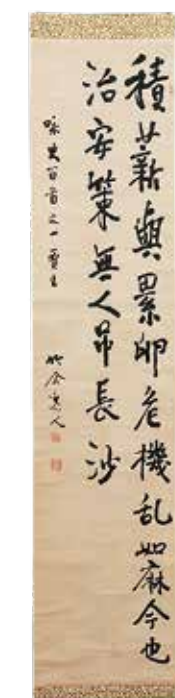 積薪與累卵危機乱如麻今也
治安策無人弔長沙
咏史百首之一賈生